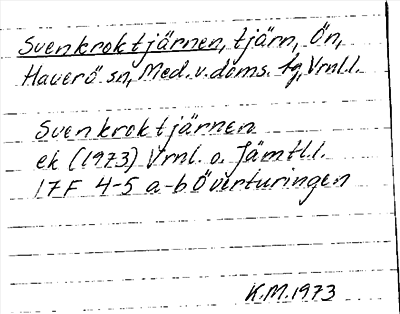 Svenkroktjärnen, tjärn, Ön,
Haverö sn, Med. v. doms. tg, Vrnl.l.
Svenkroktjärnen
ek (1973) Vrnl. o. Jämtl.l.
17F 4-5 a-b Överturingen
K.M. 1973